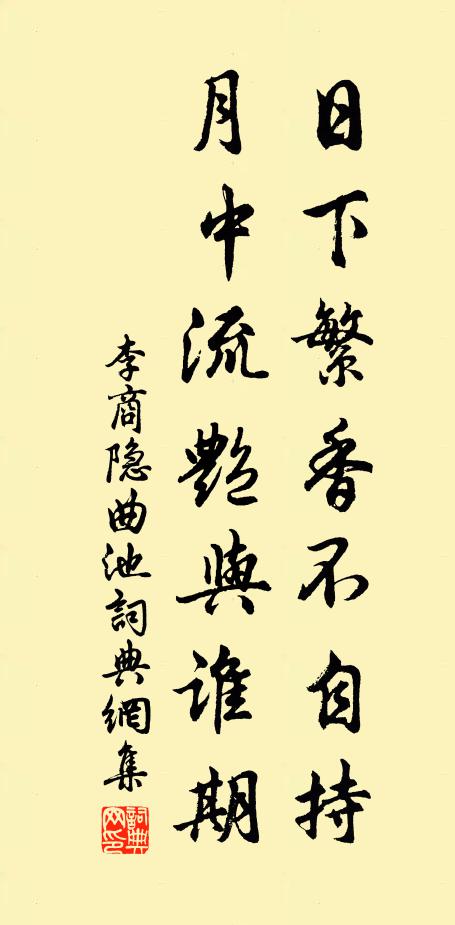 日下繁香不自持
月中流艷與谁期
李商隐曲池詞典網集
詞典网印